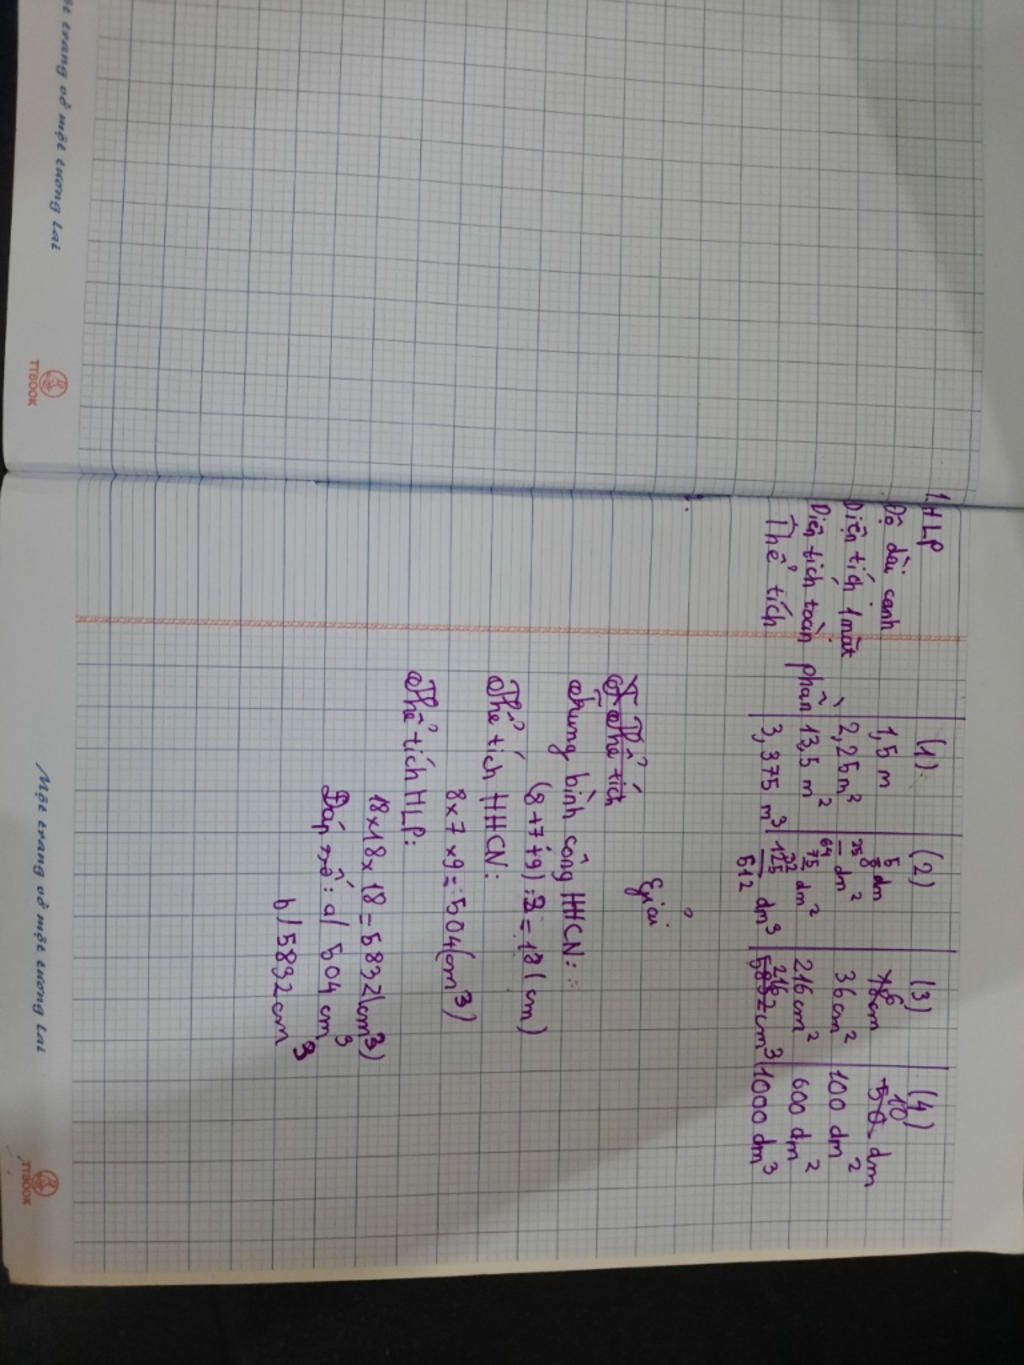 1. HLP (1) (2) (3) (4)
Độ dài cạnh 1,5 m 5/8 dm 6 cm 10 dm
Diện tích 1 mặt 2,25 m² 25/64 dm² 36 cm² 100 dm²
Diện tích toàn phần 13,5 m² 75/32 dm² 216 cm² 600 dm²
Thể tích 3,375 m³ 125/512 dm³ 216 cm³ 1000 dm³
Giải
Thể tích
Trung bình cộng HHCN:
(8+7+9):3=18(cm)
Thể tích HHCN:
8x7x9=504(cm³)
Thể tích HLP:
18x18x18=5832(cm³)
Đáp số: a/ 504 cm³
b/ 5832 cm³
Một trang vở một tương lai
TTBOOK
Một trang vở một tương lai
TTBOOK